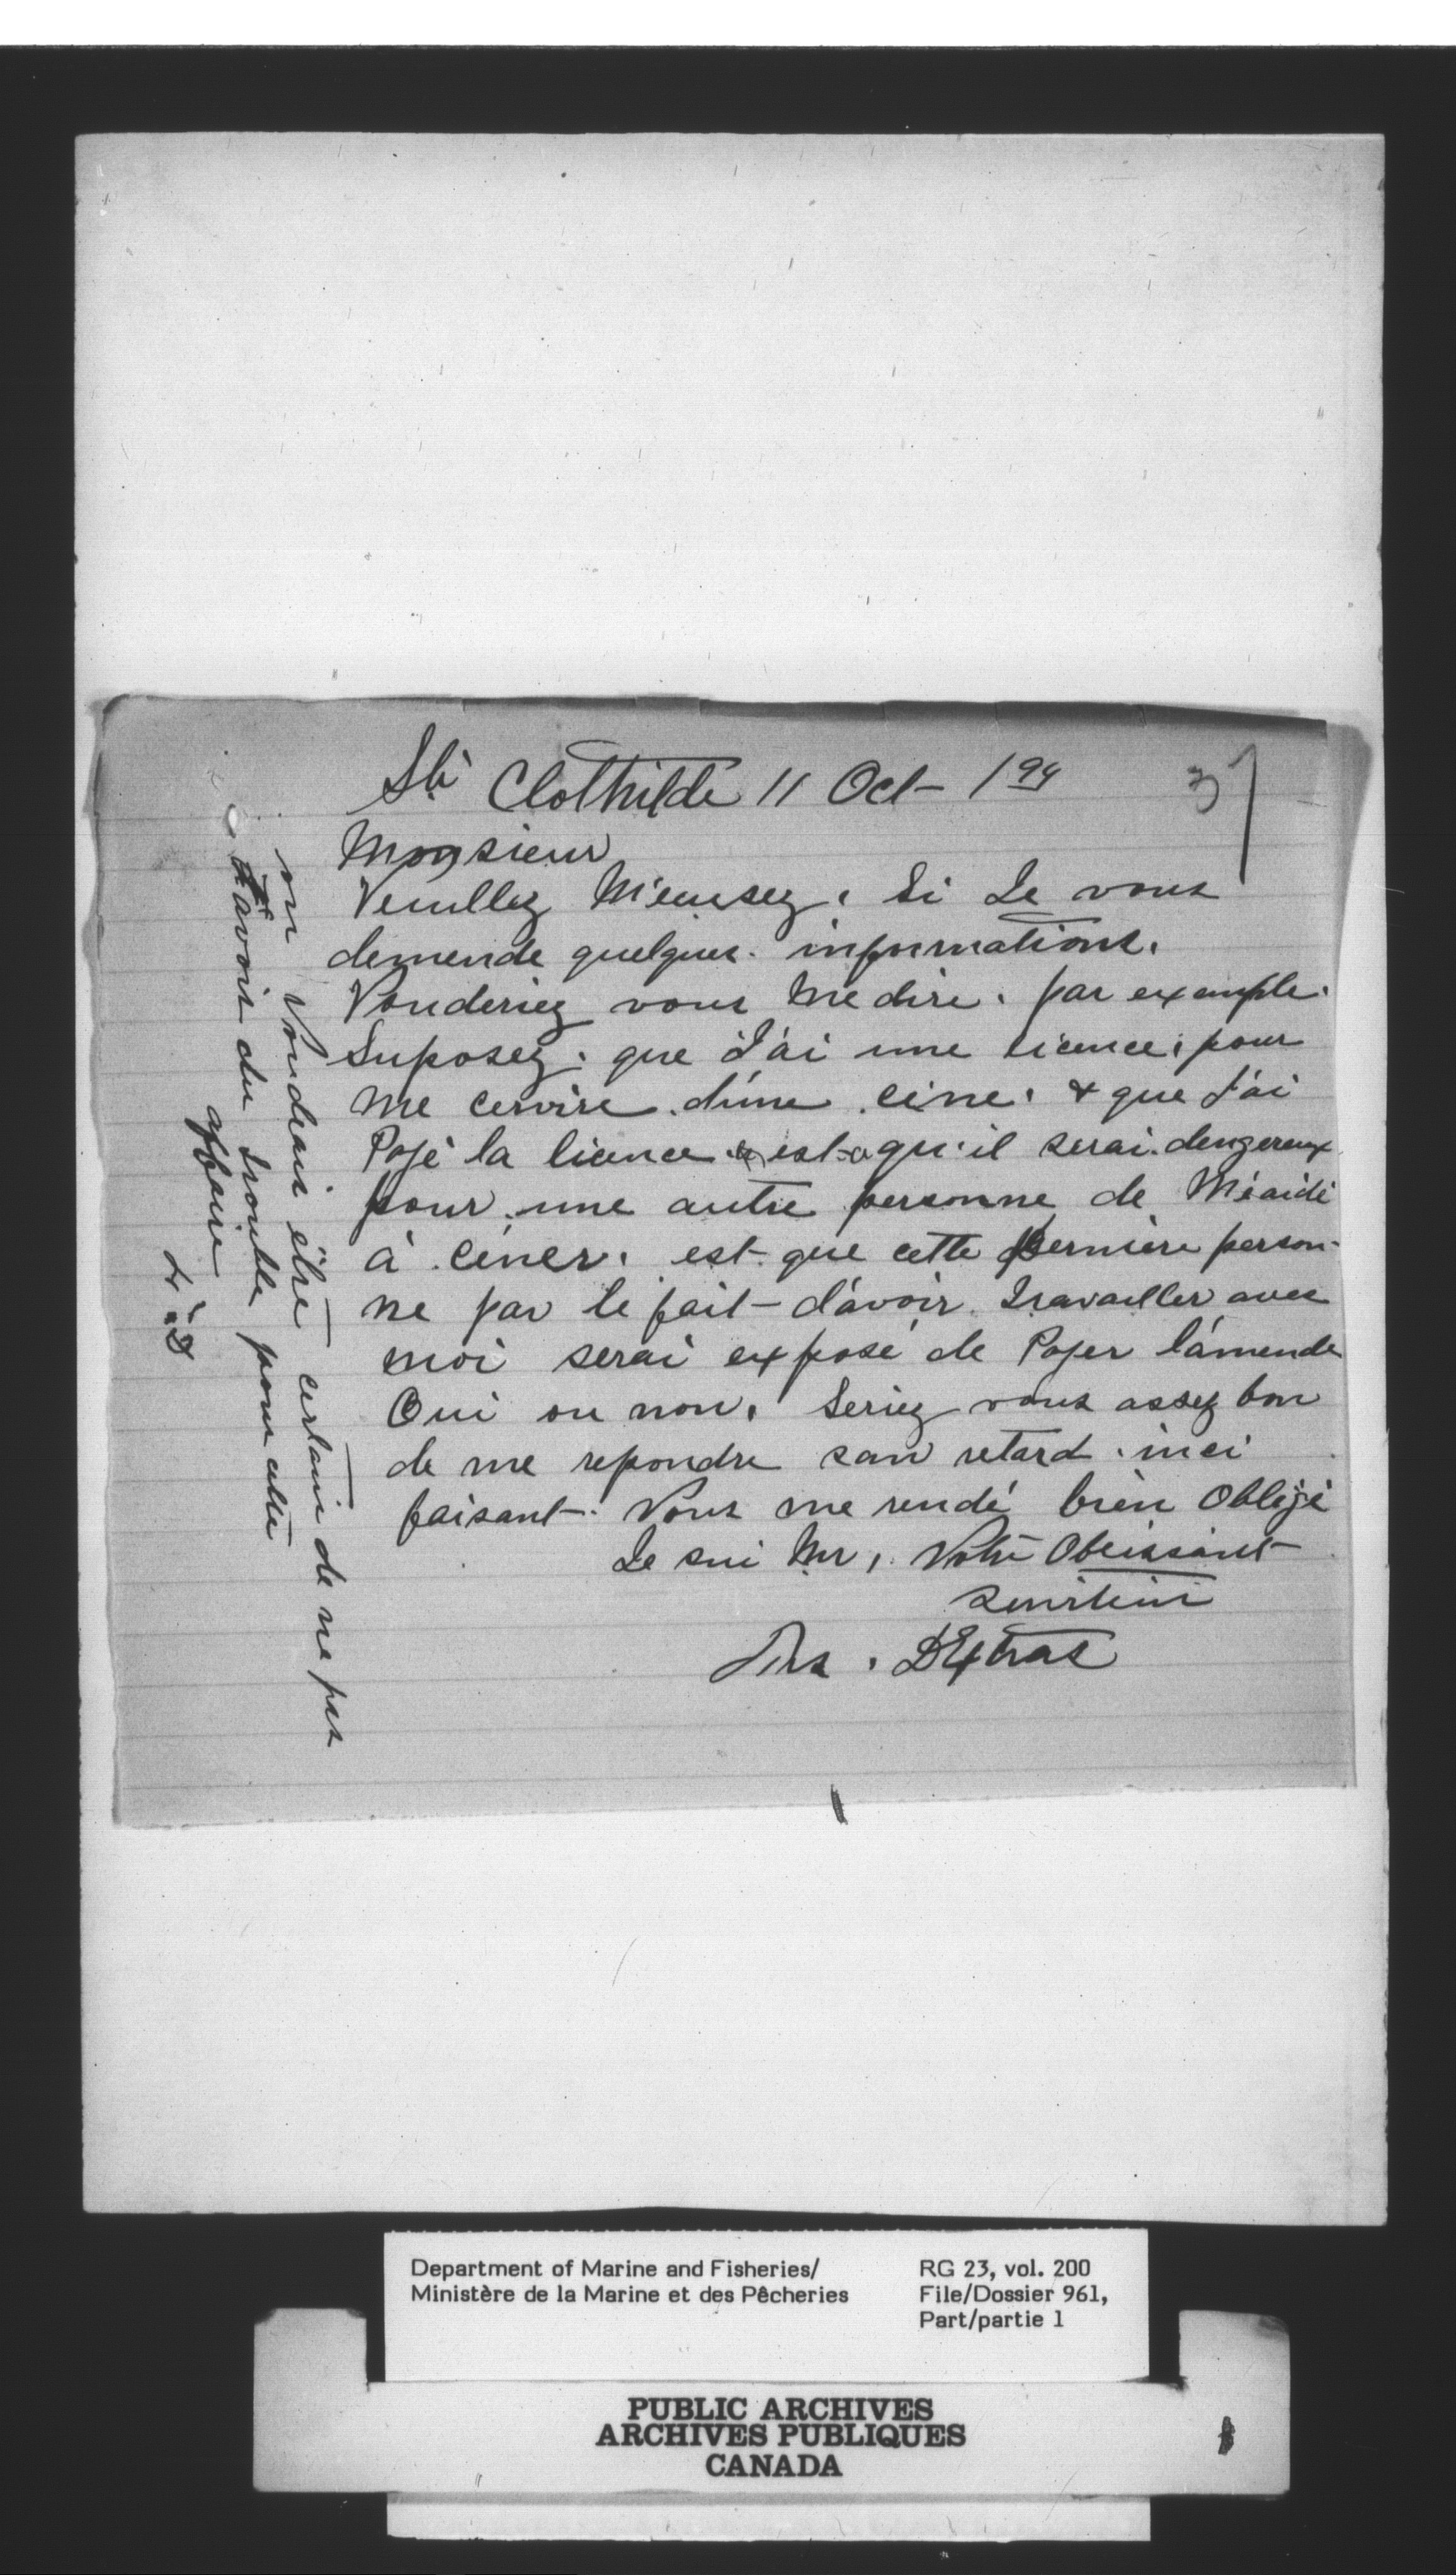 Ste Clothilde 11 Oct - 194
37
Monsieur
Veuillez M'éxusez, Si Je vous
demende quelques informations.
Vouderiez vous me dire. par exemple.
Suposez. que J'ai une licence, pour
me cervire d'une cine. & que J'ai
Pajé la licence est-ce qu'il serai dengereux
pour une autre personne de M'éaidé
à ciner. est-que cette dernière person-
ne par le fait-d'avoir travailler avec
moi serai exposé de Pajer l'amende
Oui ou non. Seriez vous assez bon
de me repondre san retard. inci
faisant. Vous me rendé bien Obligé
Je sui Mr, Votre Obeissant
Serviteur
D'Extras
on voudrais être certain de ne pas
avoir du trouble pour cette
affaire
Department of Marine and Fisheries/
Ministère de la Marine et des Pêcheries
RG 23, vol. 200
File/Dossier 961,
Part/partie 1
PUBLIC ARCHIVES
ARCHIVES PUBLIQUES
CANADA